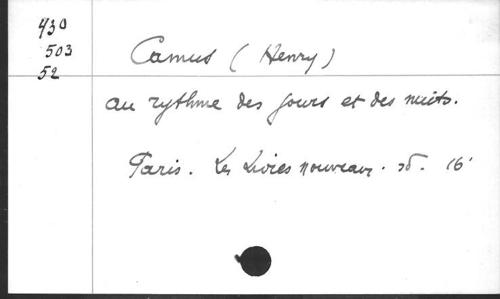 430
503
52
Camus (Henry)
Au rythme des jours et des nuits.
Paris. Les Livres nouveaux. sd. 16°